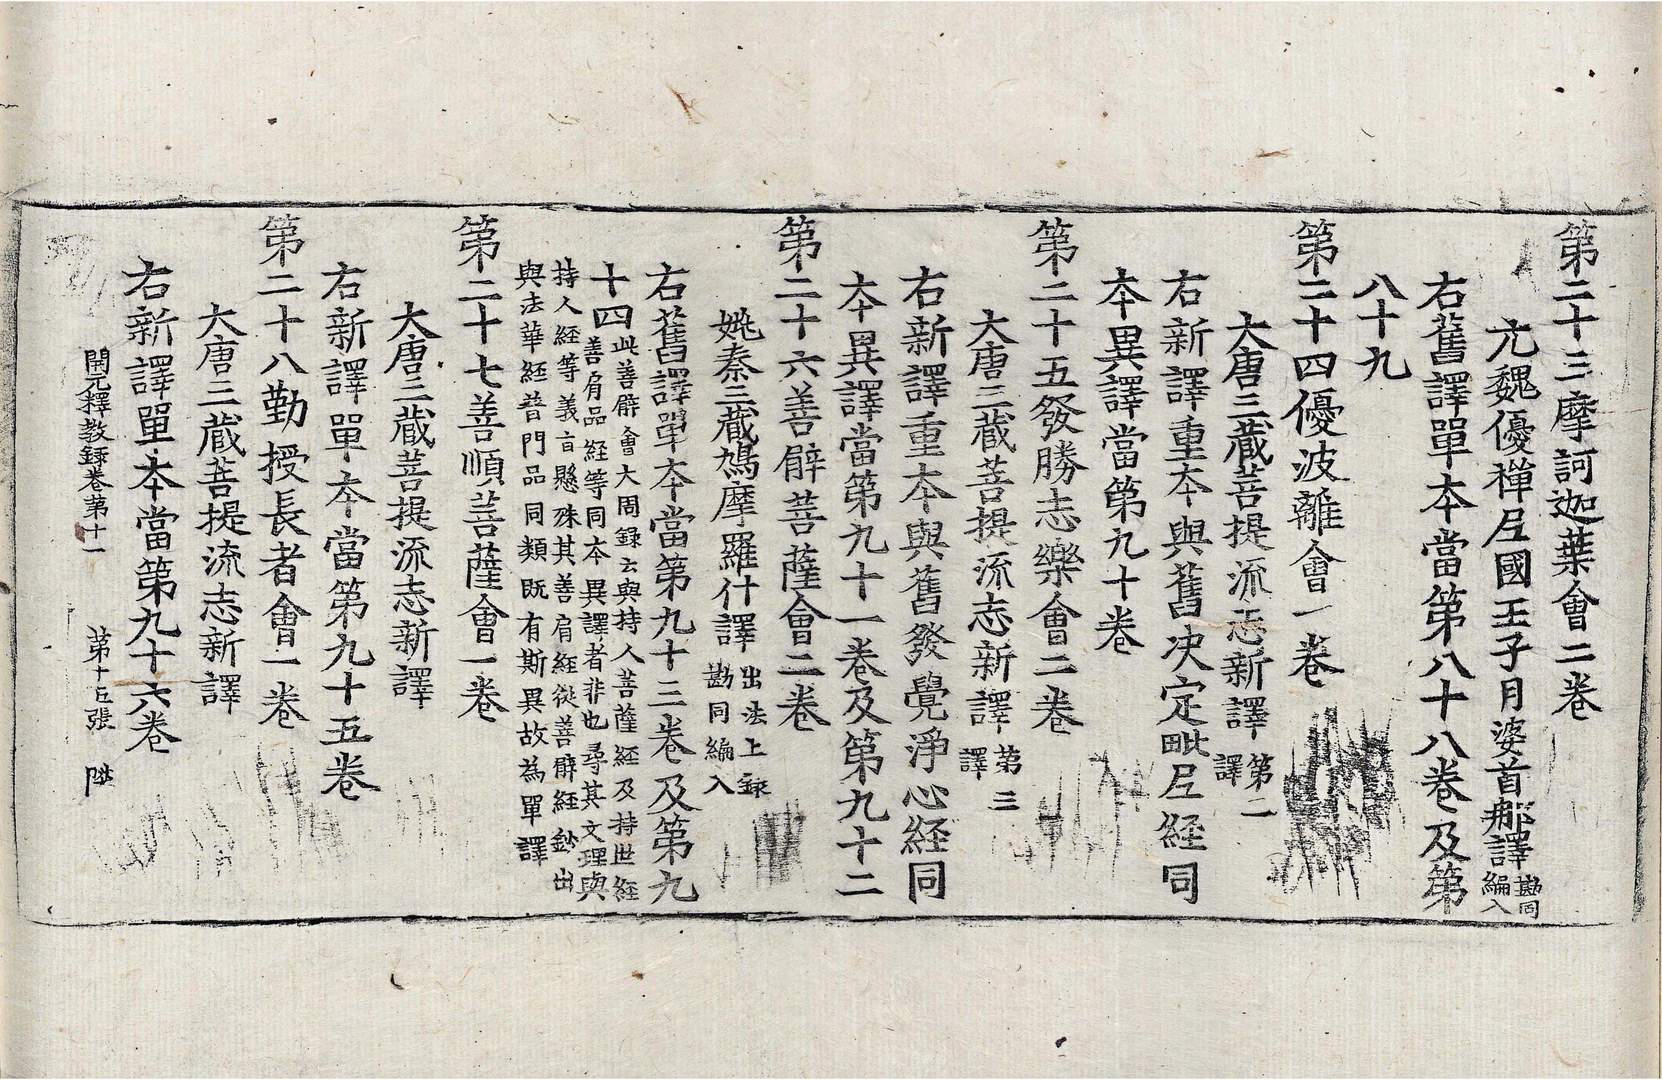 第二十三摩訶迦葉會二卷
元魏優禪尼國王子月婆首那譯勘同編入
右舊譯單本當第八十八卷及第
八十九
第二十四優波離會一卷
大唐三藏菩提流志新譯第二譯
右新譯重本與舊決定毗尼經同
本異譯當第九十卷
第二十五發勝志樂會二卷
大唐三藏菩提流志新譯第三譯
右新譯重本與舊發覺淨心經同
本異譯當第九十一卷及第九十二
第二十六善臂菩薩會二卷
姚秦三藏鳩摩羅什譯出法上錄勘同編入
右舊譯單本當第九十三卷及第九
十四此善臂會大周錄云與持人菩薩經及持世經
善肩品經等同本異譯者非也尋其文理與
持人經等義旨懸殊其善肩經從善臂經鈔出
與法華經普門品同類既有斯異故為單譯
第二十七善順菩薩會一卷
大唐三藏菩提流志新譯
右新譯單本當第九十五卷
第二十八勤授長者會一卷
大唐三藏菩提流志新譯
右新譯單本當第九十六卷
開元釋教錄卷第十一 第十五張 陞